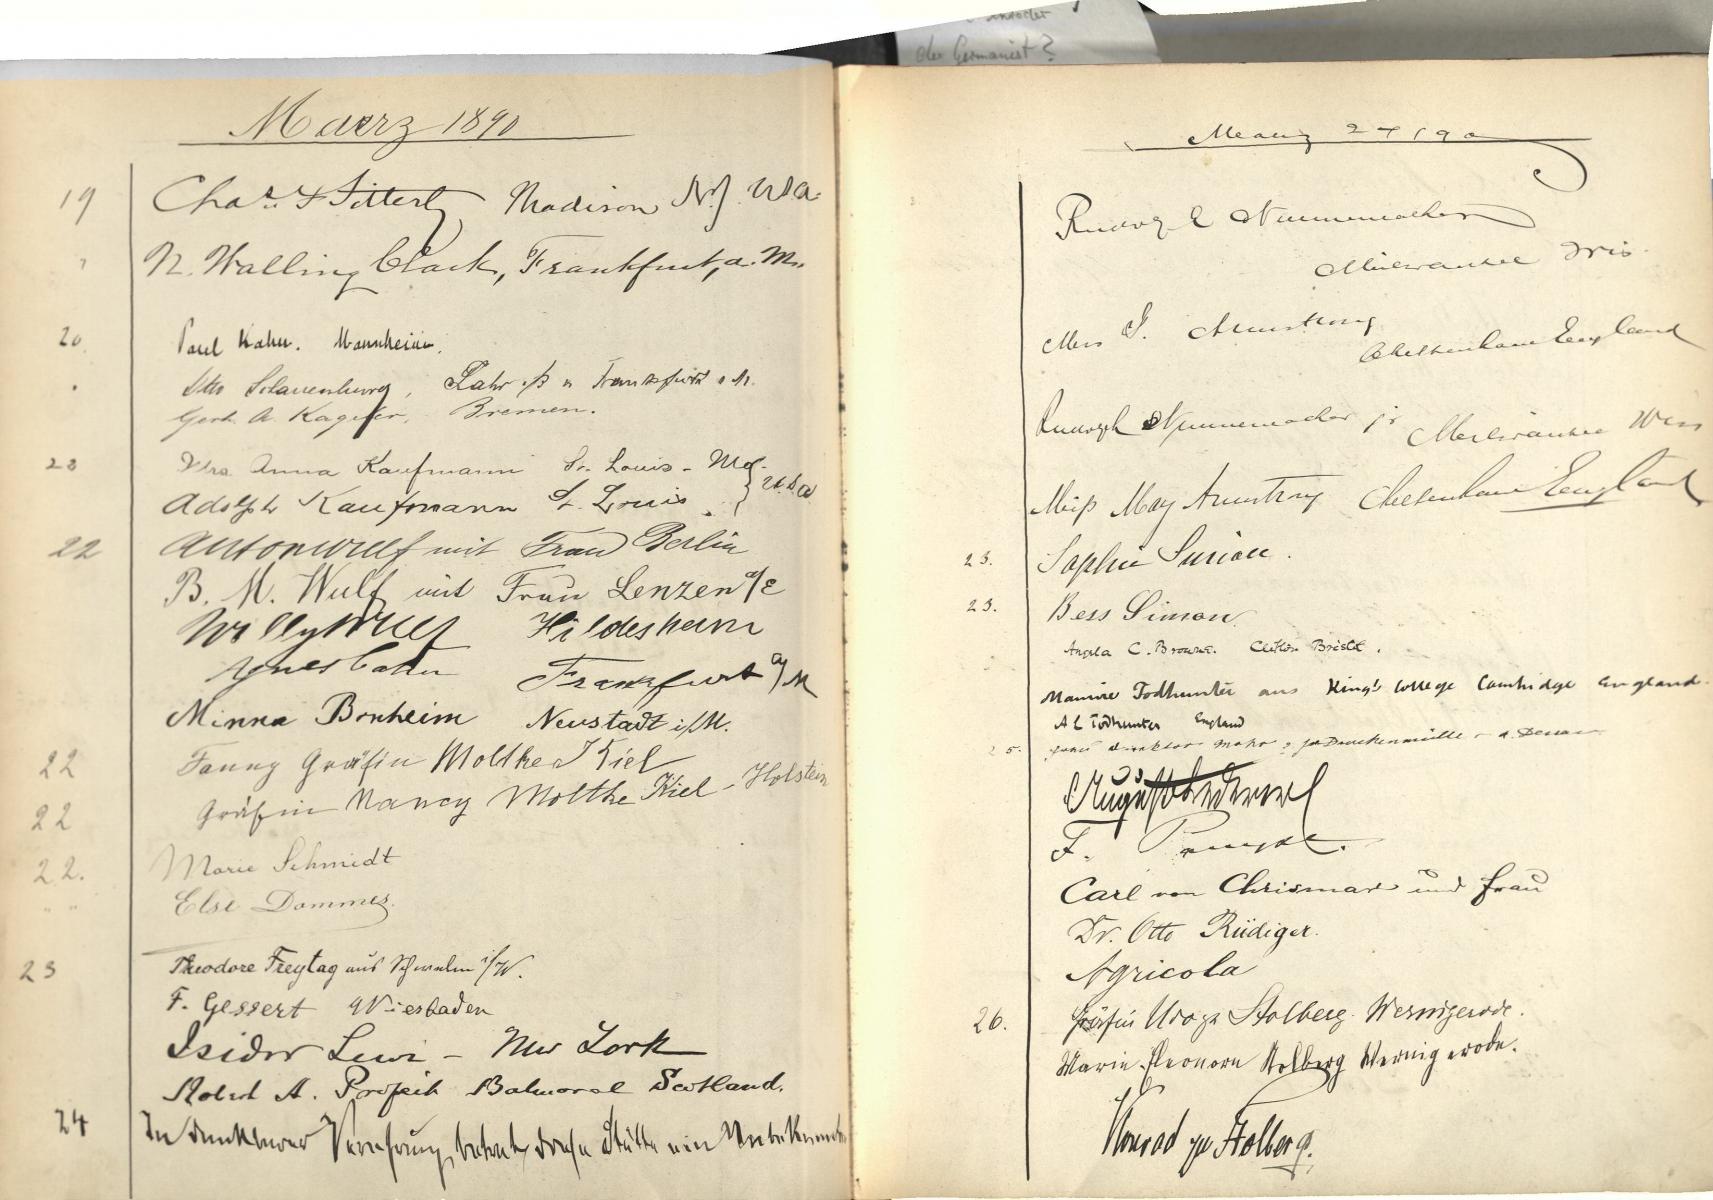 der Germanist?
Maerz 1890
19 Chas. F Sitterly Madison N.J. USA.
" N. Walling Clark, Frankfurt, a. M.
20 Paul Kahn. Mannheim.
" Otto Schauenburg, Lahr i/B u Frankfurt a M.
Gerh. A. Bremen.
20 Mrs Anna Kaufmann St. Louis - Mo.
Adolph Kaufmann St. Louis. } U.S.A
22 Anton Wulf mit Frau Berlin
B. M. Wulf mit Frau Lenzen a/E
Willy Wulf Hildesheim
Agnes Cahn Frankfurt a/M
Minna Bonheim Neustadt i/M.
22 Fanny Gräfin Moltke Kiel
22 Gräfin Nancy Moltke Kiel - Holstein
22. Marie Schmidt
" " Else Dammes.
23 Theodore Freytag aus Schwelm i/W.
F. Gessert Wiesbaden
Isidor Lewi - New York
Robert A. Profeit Balmoral Scotland.
24 In dankbarer Verehrung betrat diese Stätte ein Unbekannter
24 1890
Rudolph Nunnemacher
Milwaukee Wis.
Mrs G. Armstrong
Cheltenham England
Rudolph Nunnemacher jr Milwaukee Wis
Miss May Armstrong Cheltenham England
23. Sophie Simon.
23. Bess Simon
Angela C. Browne. Clifton Bristol.
Maurice Todhunter aus King's College Cambridge England.
A L Todhunter England
25.
August
F.
Carl von Chrismar und Frau
Dr. Otto Rüdiger.
Agricola
26. Gräfin Stolberg-Wernigerode.
Marie Eleonore Stolberg Wernigerode.
Konrad zu Stolberg.